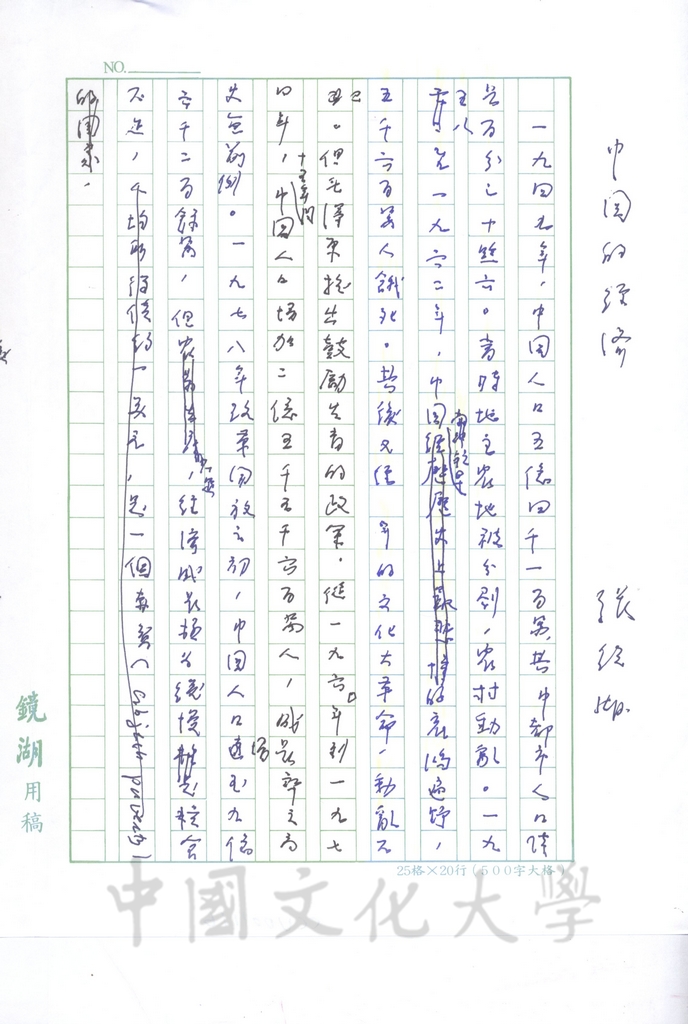 中国的経済
張鏡湖
NO.
一九四九年,中国人口五億四千一百萬,其中都市人口僅
是百分之十點六。當時地主農地被分割,農村動亂。一九
五八至一九六二年,中国哀鴻遍野,
五千六百萬人餓死。其後又経 年的文化大革命,動亂不
已。但毛澤東提出鼓勵生育的政策。從一九六〇年到一九七
四年,十五年間中国人口增加二億五千五千六百萬人,成長率之高
史無前例。一九七八年改革開放之初,中国人口達到九億
六千二百餘萬,但農,経済成長極為緩慢糧食
不足,人均所得僅約一美元,是一個赤貧(abject poverty)
的国家。
鏡湖用稿
25格×20行(500字大格)
中國文化大學